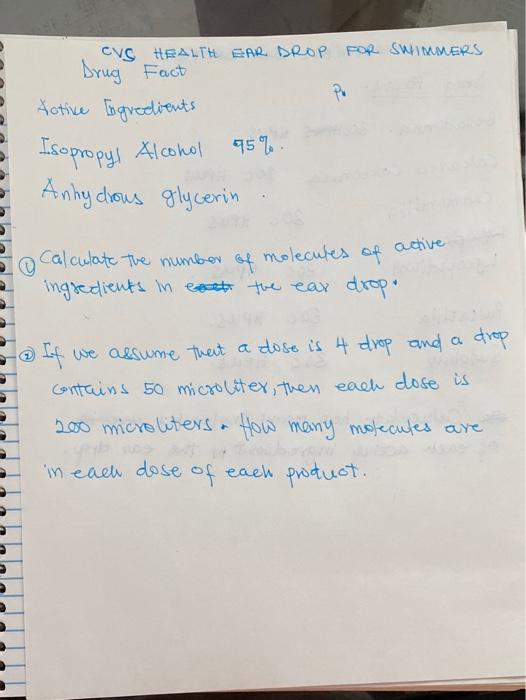 CVS HEALTH EAR DROP FOR SWIMMERS
Drug Fact
Active Ingredients
Isopropyl Alcohol 95%.
Anhydrous glycerin.
① Calculate the number of molecules of active
ingredients in the ear drop.
② If we assume that a dose is 4 drop and a drop
contains 50 microliter, then each dose is
200 microliters. How many molecules are
in each dose of each product.